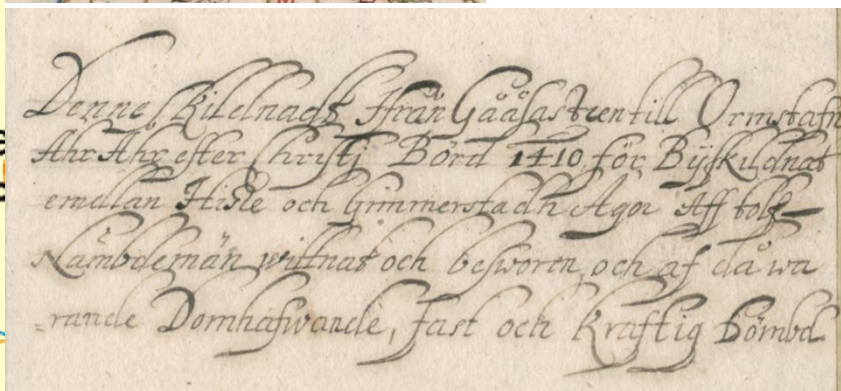 Denne Skilnads Ifrån Gååsasteen till Ormstafn
Ahr Åhr efter Christi Börd 1410 för Byskildnat
emellan Hisle och Grimmerstadh Agor Aff tolf
Nämbdemän wittnat och besworen, och af då wa
=rande Domhafwande, fast och kraftig dömbd